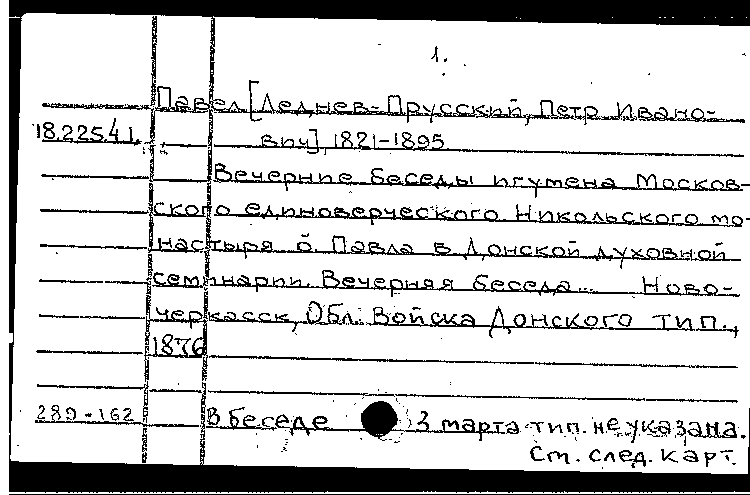 1.
Павел [Леднев-Прусский, Петр Ивано-
18.225.4.1. вич], 1821-1895
Вечерние беседы игумена Москов-
ского единоверческого Никольского мо-
настыря о. Павла в Донской духовной
семинарии. Вечерняя беседа... Ново-
черкасск, Обл. Войска Донского тип.,
1876
289-162 В беседе 3 марта тип. не указана.
См. след. карт.